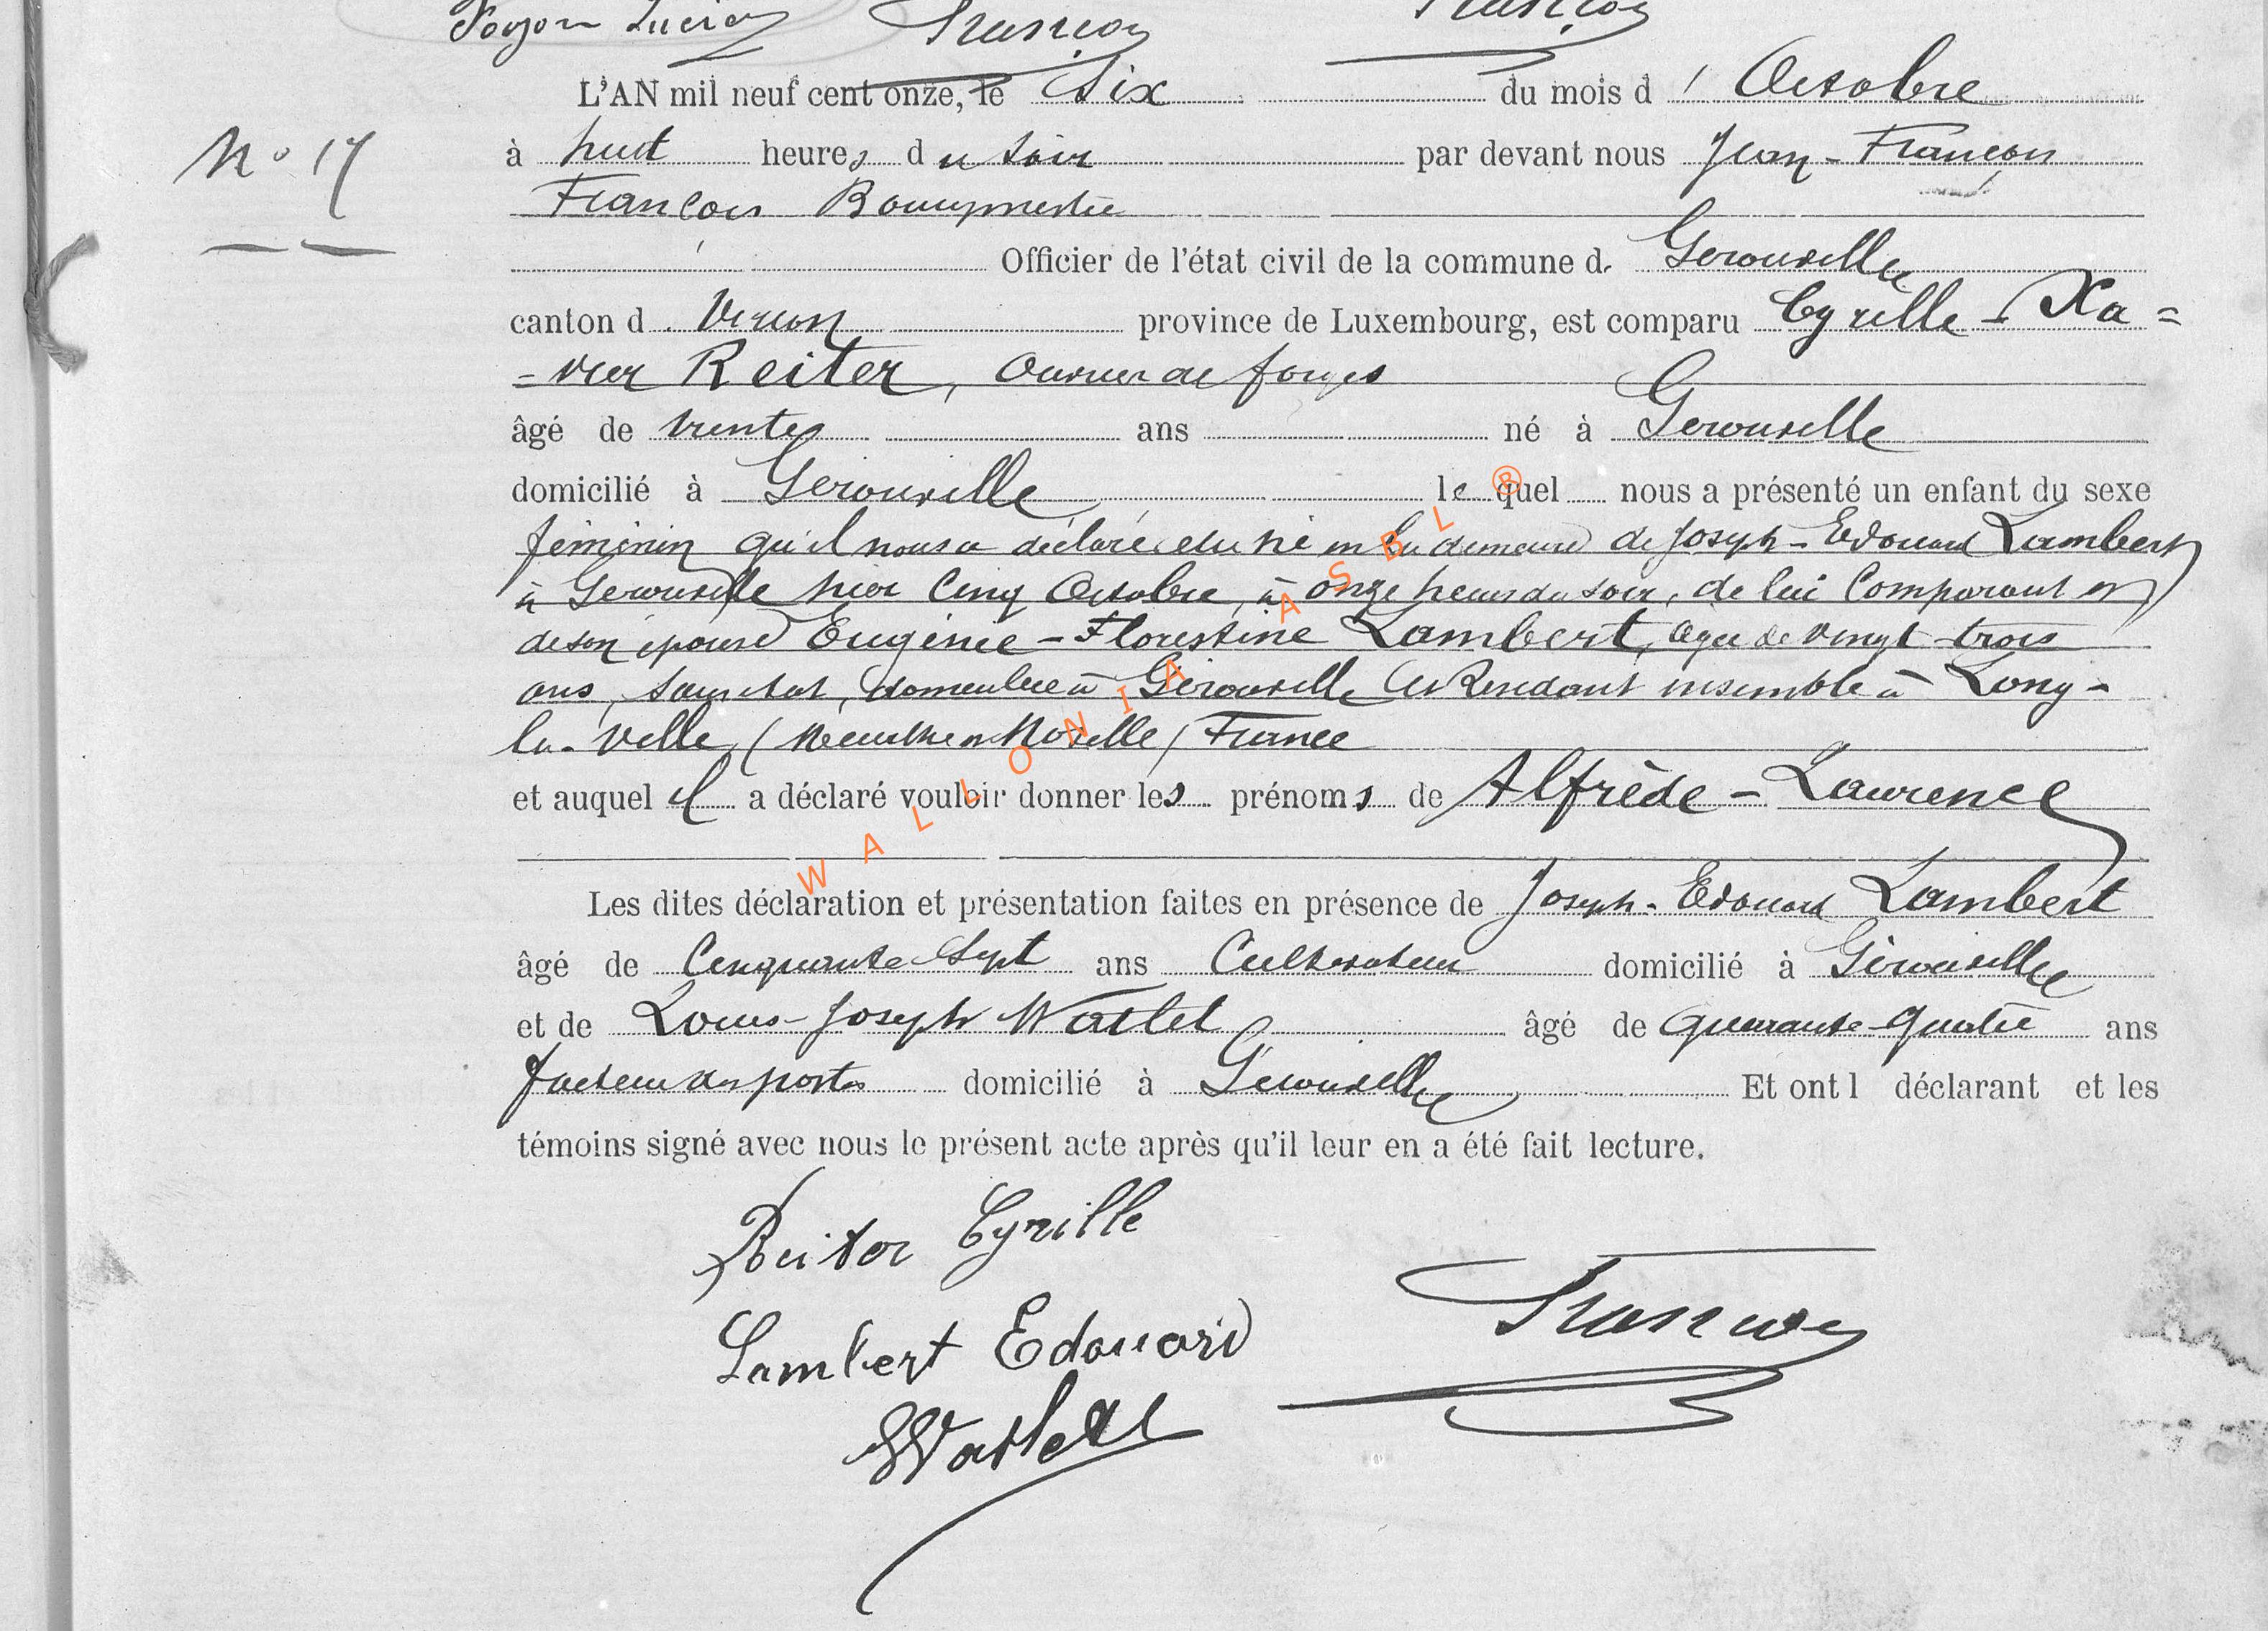 Poyon Lucien François François
L'AN mil neuf cent onze, le Six du mois d' Octobre
N° 17
à huit heures du soir par devant nous Jean-François
François Bourgmestre
Officier de l'état civil de la commune de Gerouville
canton de Virton province de Luxembourg, est comparu Cyrille-Xa=
=vier Reiter, Ouvrier de forges
âgé de trente ans né à Gerouville
domicilié à Gerouville lequel nous a présenté un enfant du sexe
féminin qu'il nous a déclaré être né en la demeure de Joseph-Edouard Lambert
à Gerouville hier Cinq Octobre, à onze heures du soir, de lui Comparant et
de son épouse Eugénie-Florestine Lambert, agée de vingt-trois
ans, sans état, domiciliée à Gérouville et Résidant ensemble à Long-
la-Ville, (Meurthe et Moselle) France
et auquel il a déclaré vouloir donner les prénoms de Alfrède-Laurence
Les dites déclaration et présentation faites en présence de Joseph-Edouard Lambert
âgé de Cinquante-Sept ans Cultivateur domicilié à Gérouville
et de Louis-Joseph Watlet âgé de quarante-quatre ans
facteur des postes domicilié à Gérouville Et ont l déclarant et les
témoins signé avec nous le présent acte après qu'il leur en a été fait lecture.
Reiter Cyrille
François
Lambert Edouard
Watlet
WALLONIA ASBL ®